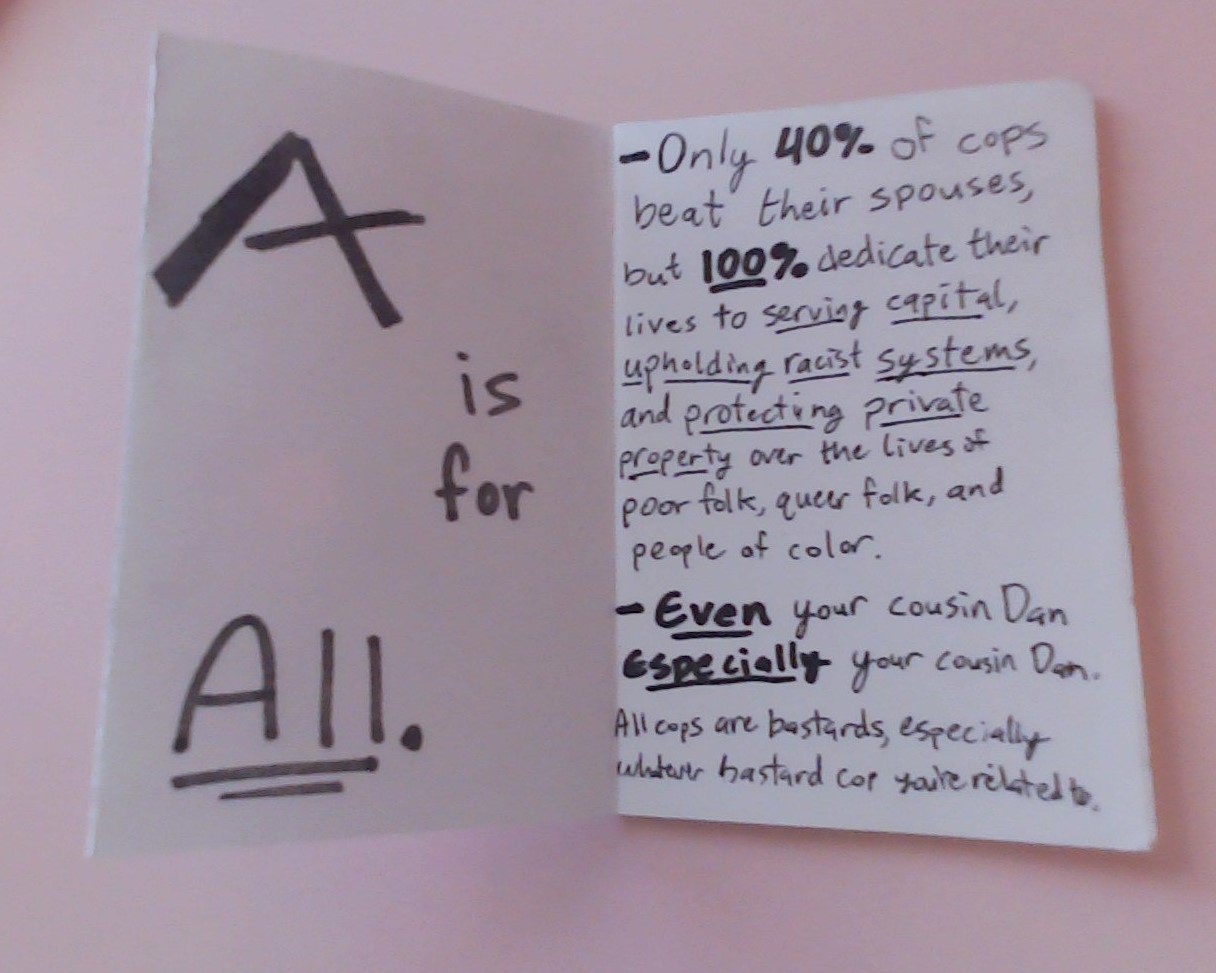 A
is
for
All.
- Only 40% of cops
beat their spouses,
but 100% dedicate their
lives to serving capital,
upholding racist systems,
and protecting private
property over the lives of
poor folk, queer folk, and
people of color.
- Even your cousin Dan
Especially your cousin Dan.
All cops are bastards, especially
whatever bastard cop you're related to.